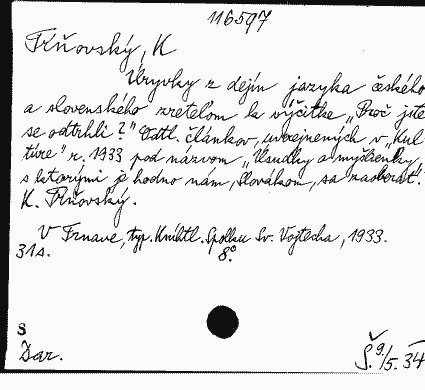 116597
Tŕňovský, K
Úryvky z dejín jazyka českého
a slovenského zreteľom k výčitke „Proč jste
se odtrhli?" Odtl. článkov, uverejnených v „Kul
túre" r. 1933 pod názvom „Úsudky a myšlienky,
s ktorými je hodno nám, Slovákom, sa zaoberať."
K. Tŕňovský.
V Trnave, typ. Kníhtl. Spolku Sv. Vojtecha, 1933.
31 s. 8°.
S
Dar. Š. 9/5. 34